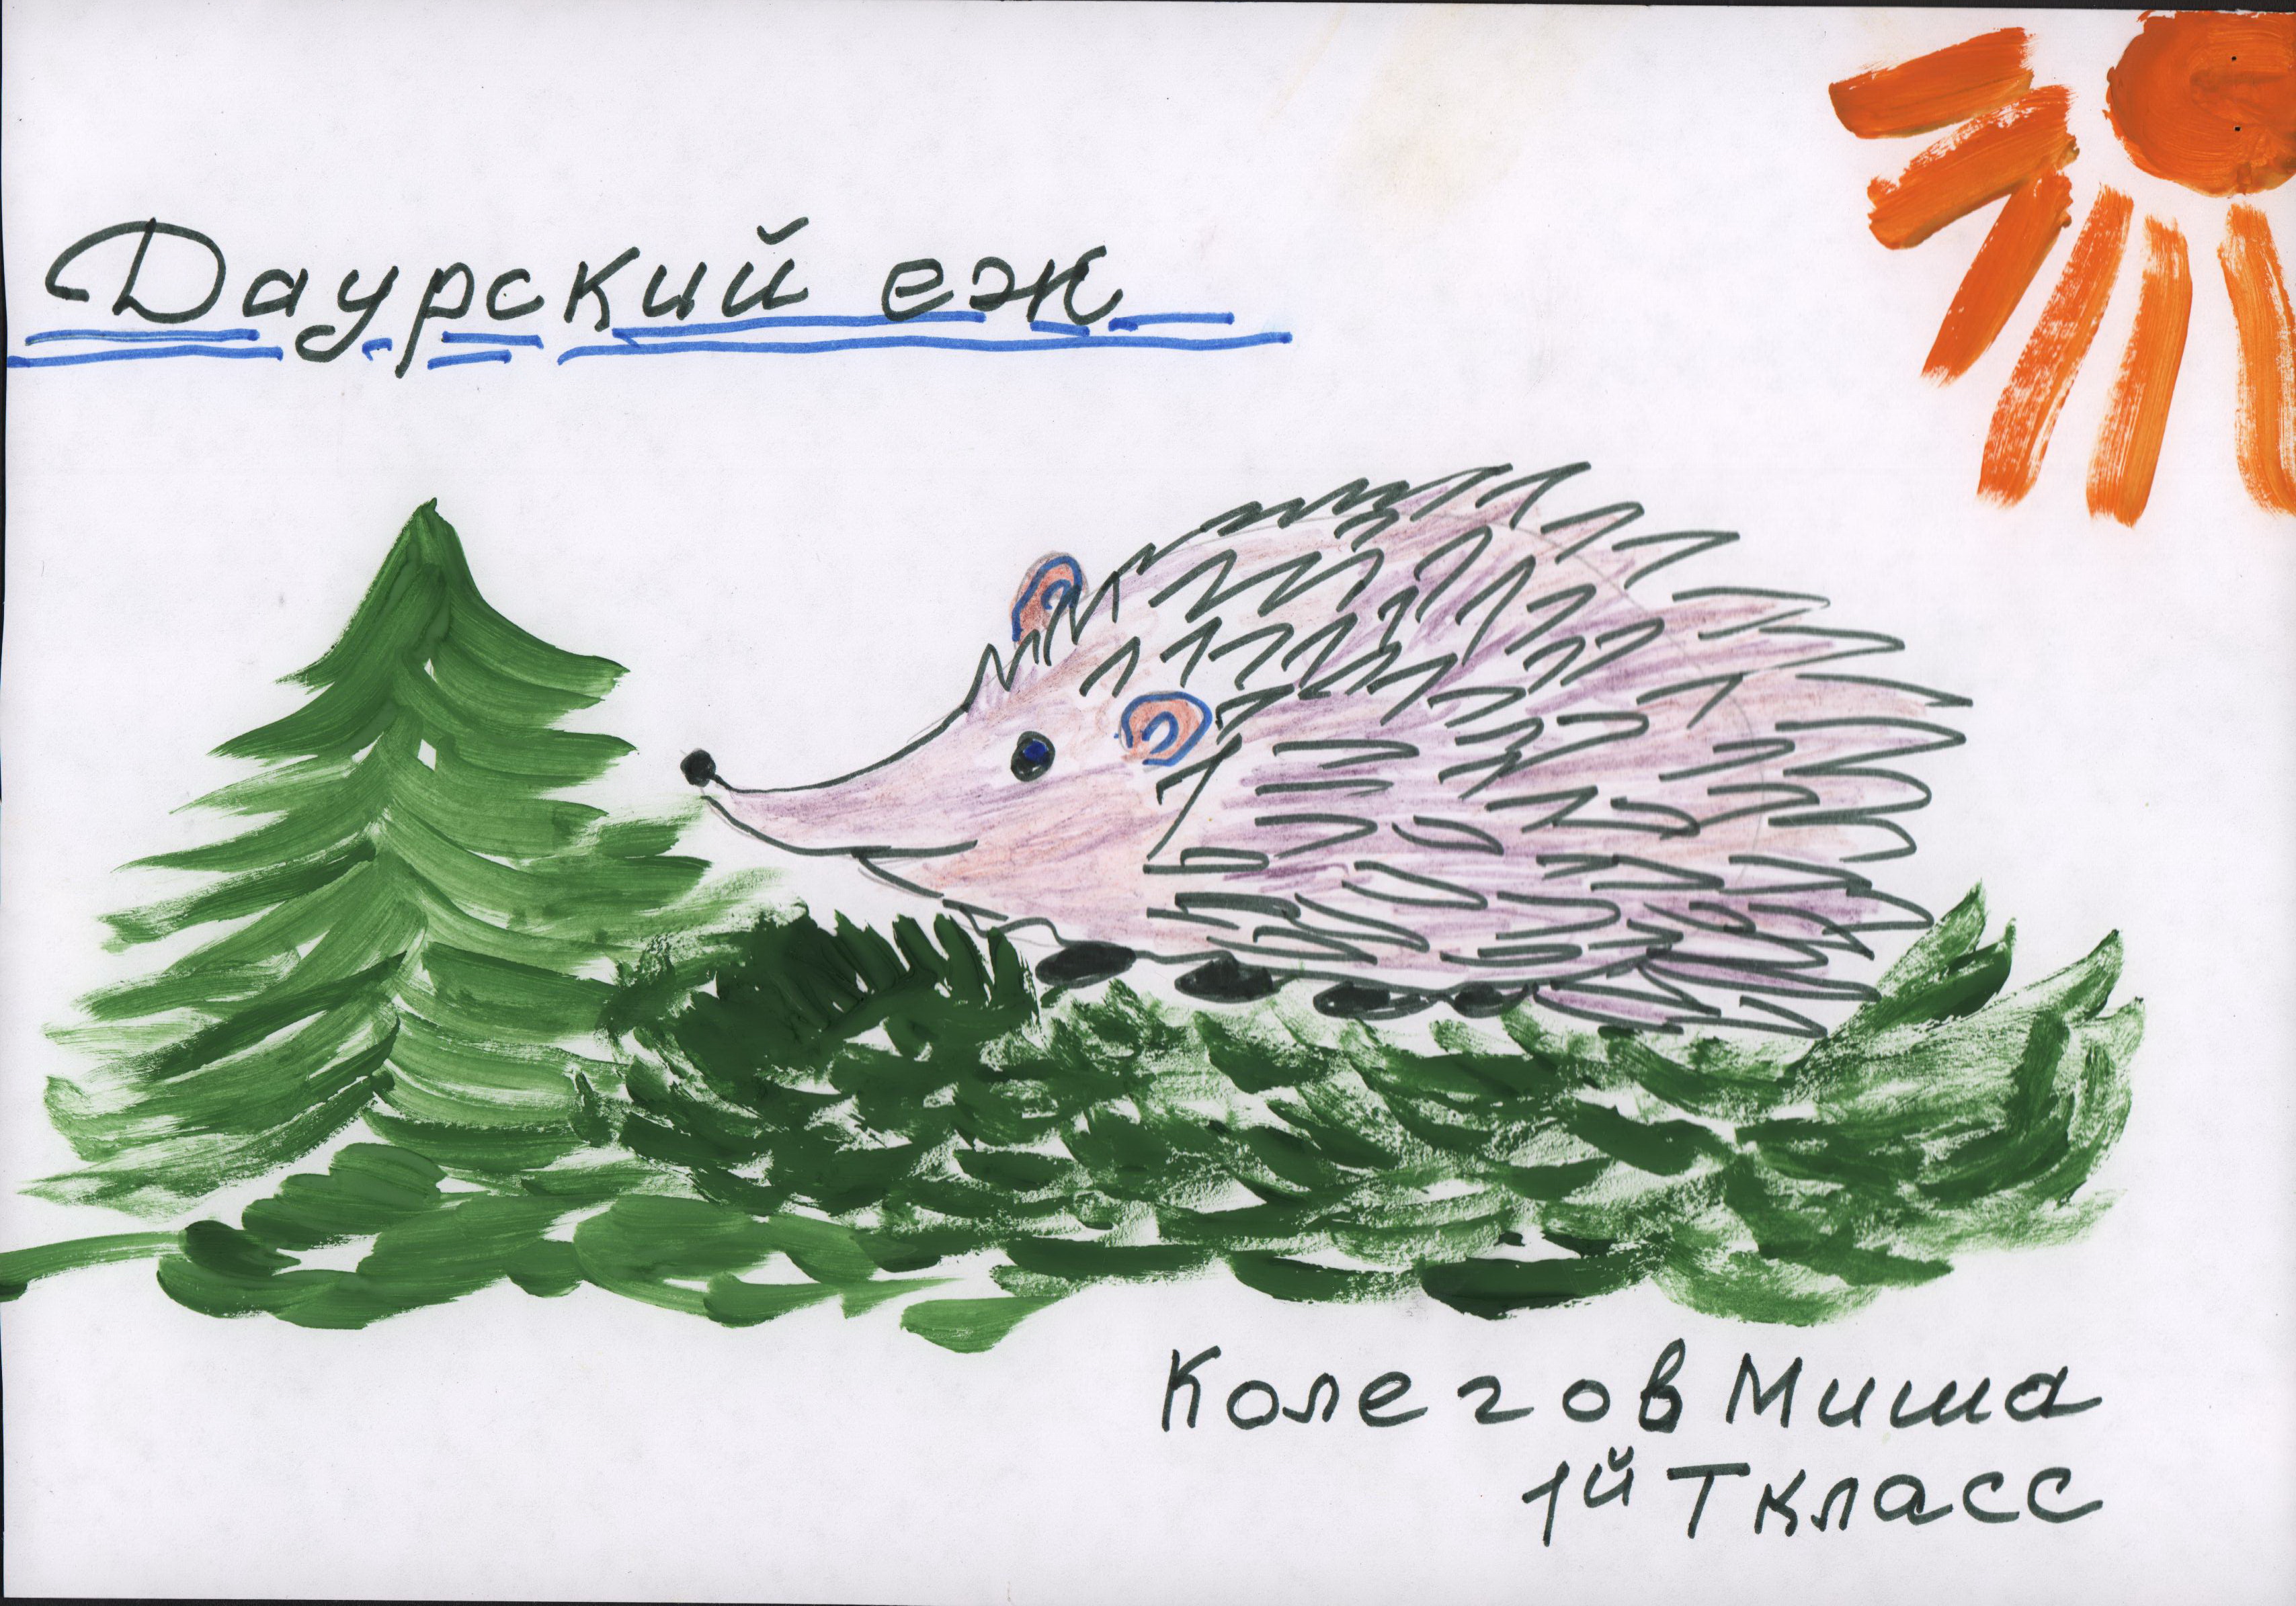 Даурский еж
Колегов Миша
1й Т класс